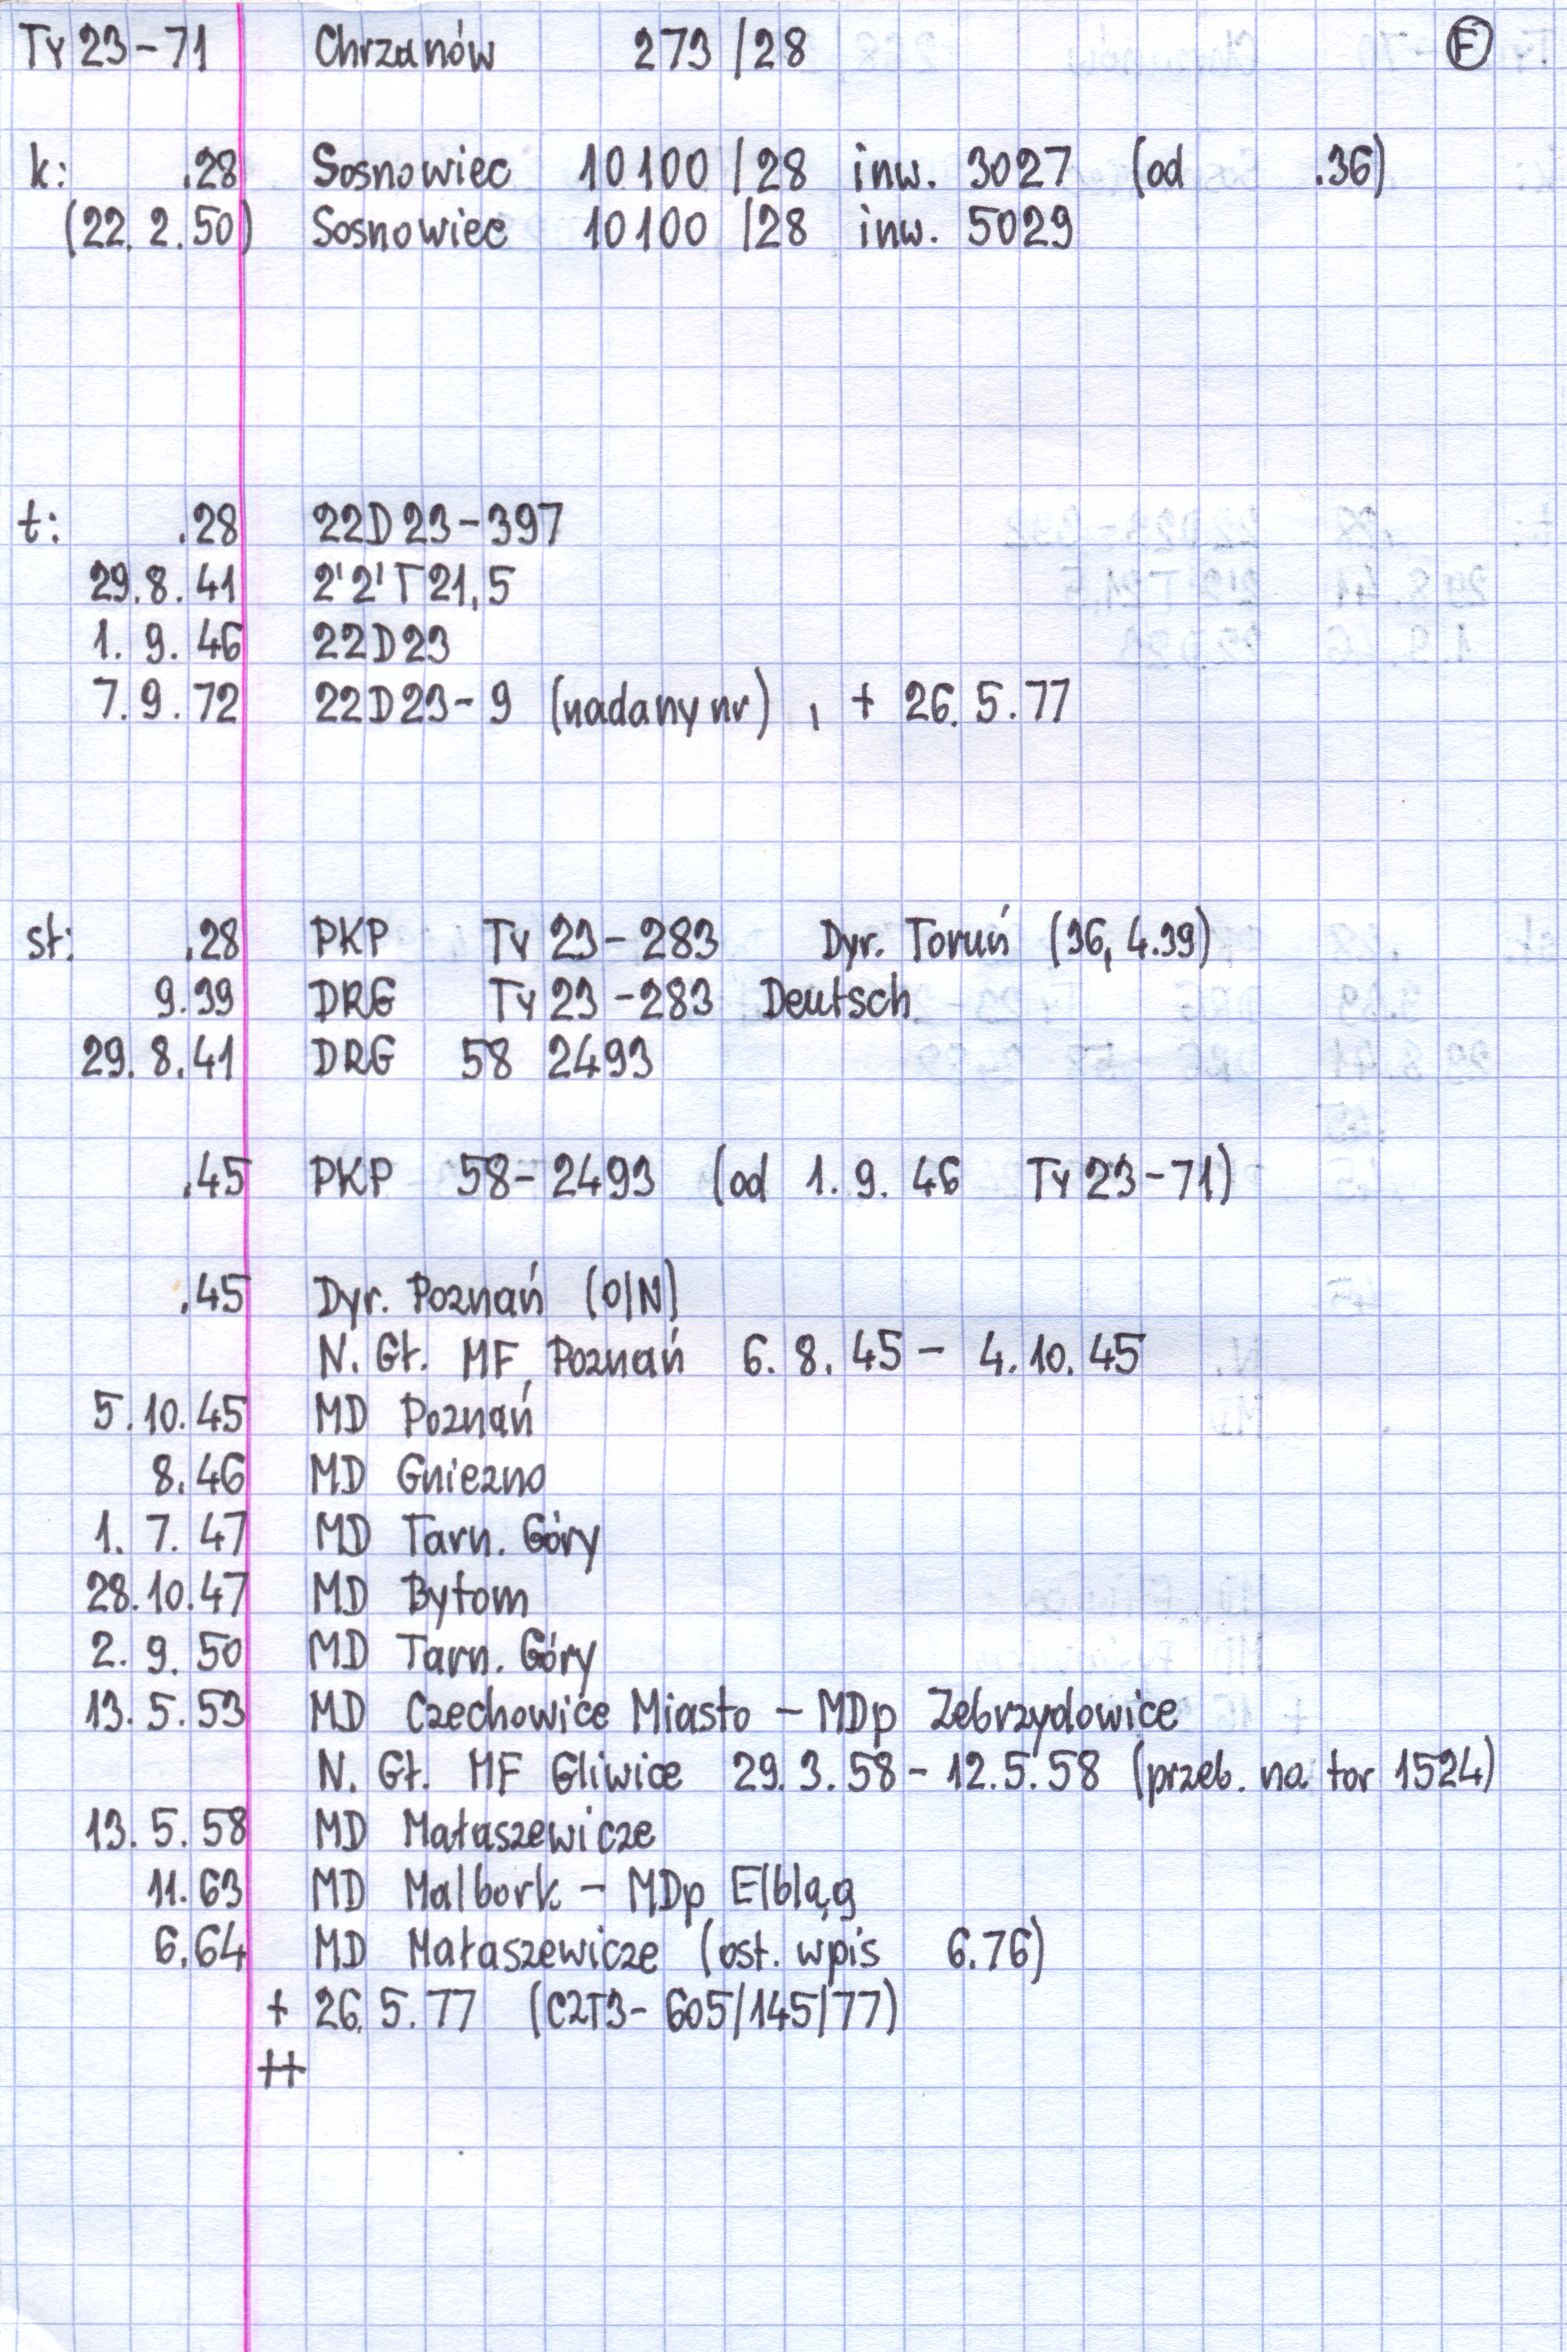 Ty 23-71 Chrzanów 273/28 F
k: .28 Sosnowiec 10100/28 inw. 3027 (od .36)
(22.2.50) Sosnowiec 10100/28 inw. 5029
t: .28 22D23-397
29.8.41 2'2'T21,5
1.9.46 22D23
7.9.72 22D23-9 (nadany nr), + 26.5.77
st: .28 PKP Ty 23-283 Dyr. Toruń (36, 4.39)
9.39 DRG Ty 23-283 Deutsch
29.8.41 DRG 58 2493
.45 PKP 58-2493 (od 1.9.46 Ty 23-71)
.45 Dyr. Poznań (O/N)
N. Gł. MF Poznań 6.8.45 - 4.10.45
5.10.45 MD Poznań
8.46 MD Gniezno
1.7.47 MD Tarn. Góry
28.10.47 MD Bytom
2.9.50 MD Tarn. Góry
13.5.53 MD Czechowice Miasto - MDp Zebrzydowice
N. Gł. MF Gliwice 29.3.58 - 12.5.58 (przeb. na tor 1524)
13.5.58 MD Małaszewicze
11.63 MD Malbork - MDp Elbląg
6.64 MD Małaszewicze (ost. wpis 6.76)
+ 26.5.77 (C2T3-605/145/77)
++